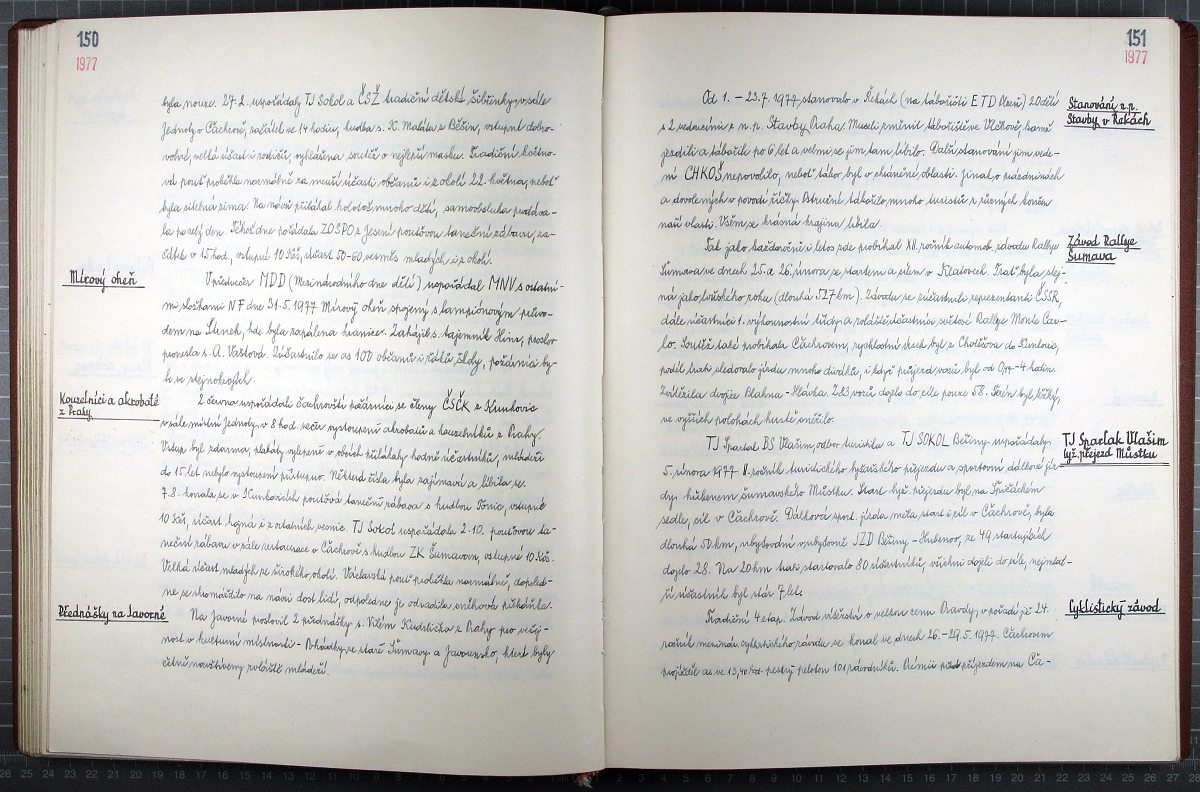 150
1977
byla nouze. 27.2. uspořádaly TJ Sokol a ČSŽ tradiční dětské šibřinky v sále
Jednoty v Čachrově, začátek ve 14 hodin, hudba s. K. Matáta z Běšin, vstupné dobro-
volné, velká účast i rodičů, vyhlášena soutěž o nejlepší masku. Tradiční květno-
vá pouť proběhla normálně za menší účasti občanů i z okolí 22. května, neboť
byla citelná zima. Na návsi přilákal kolotoč mnoho dětí, samoobsluha prodáva-
la po celý den. Téhož dne pořádala ZO SPO z Jesení pouťovou taneční zábavu, za-
čátek v 15 hod., vstupné 10 Kčs, účast 50-60 vesměs mladých i z okolí.
Mírový oheň
V předvečer MDD (Mezinárodního dne dětí) uspořádal MNV s ostatní-
mi složkami NF dne 31.5.1977 Mírový oheň spojený s lampiónovým průvo-
dem na Štinek, kde byla zapálena hranice. Zahájil s. tajemník, proslov
pronesla s. A. Vaštová. Zúčastnilo se as 100 občanů i žáků školy, požárníci by-
li ve stejnokrojích.
Kouzelníci a akrobaté
z Prahy
2. června uspořádali čachrovští požárníci se členy ČSČK z Kunkovic
v sále místní Jednoty v 8 hod. večer vystoupení akrobatů a kouzelníků z Prahy.
Vstup byl zdarma, plakáty vylepené v obcích přilákaly hodně účastníků, mládeži
do 15 let nebylo vystoupení přístupno. Některá čísla byla zajímavá a líbila se.
7.8. konala se v Kunkovicích pouťová taneční zábava s hudbou Tónic, vstupné
10 Kčs, účast hojná i z ostatních vesnic. TJ Sokol uspořádala 2.10. pouťovou ta-
neční zábavu v sále restaurace v Čachrově s hudbou ZK Šumavan, vstupné 10 Kčs.
Velká účast mladých ze širokého okolí. Václavská pouť proběhla normálně, dopoled-
ne se shromáždilo na návsi dost lidí, odpoledne je odradila sněhová přeháňka.
Přednášky na Javorné
Na Javorné proslovil 2 přednášky s. Vilém Kudrlička z Prahy pro veřej-
nost v kulturní místnosti - Pohádky ze staré Šumavy a Javorensko, které byly
četně navštíveny zvláště mládeží.
151
1977
Stanování n.p.
Stavby v Řekách
Od 1. - 23.7. 1977 stanovalo v Řekách (na tábořišti ETD Plzeň) 20 dětí
s 2 vedoucími z n.p. Stavby Praha. Museli změnit tábořiště ve Vlčkově, kamž
jezdili a tábořili po 6 let a velmi se jim tam líbilo. Další stanování jim vede-
ní CHKOŠ nepovolilo, neboť tábor byl v chráněné oblasti. Jinak o prázdninách
a dovolených v povodí říčky Ostružné tábořilo mnoho turistů z různých končin
naší vlasti. Všem se krásná krajina líbila.
Závod Rallye
Šumava
Tak jako každoročně, i letos zde probíhal XII. ročník automob. závodu Rallye
Šumava ve dnech 25. a 26. února se startem a cílem v Klatovech. Trať byla stej-
ná jako loňského roku (dlouhá 527 km). Závodu se zúčastnili reprezentanti ČSSR,
dále účastníci 1. výkonnostní třídy a zvláště účastníci světové Rallye Monte Car-
lo. Soutěž také probíhala Čachrovem, rychlostní úsek byl z Chvalšova do Kunkovic,
podél trati sledovalo jízdu mnoho diváků, i když průjezd vozů byl od 0,44 - 4 hodin.
Zvítězila dvojice Blahna - Hlávka. Z 83 vozů dojelo do cíle pouze 58. Terén byl těžký,
ve vyšších polohách hustě sněžilo.
TJ Spartak Vlašim
lyž. přejezd Můstku
TJ Spartak BS Vlašim, odbor turistika a TJ SOKOL Běšiny uspořádaly
5. února 1977 V. ročník turistického lyžařského přejezdu a sportovní dálkové jíz-
dy hřebenem šumavského Můstku. Start lyž. přejezdu byl na Špičáckém
sedle, cíl v Čachrově. Dálková sport. jízda měla start i cíl v Čachrově, byla
dlouhá 50 km, ubytování v ubytovně JZD Běšiny - Hubenov, ze 49 startujících
dojelo 28. Na 20 km trati startovalo 80 účastníků, všichni dojeli do cíle, nejmlad-
ší účastník byl stár 7 let.
Cyklistický závod
Tradiční 4 etap. Závod vítězství o velkou cenu Pravdy, v pořadí již 24.
ročník mezinár. cyklistického závodu se konal ve dnech 26. - 29.5. 1977. Čachrovem
projížděl as ve 13,40 hod. pestrý peloton 101 závodníků. Prémii před příjezdem na Ča-